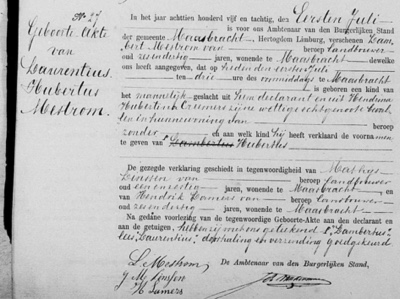 No 27
Geboorte Akte
van
Laurentius
Hubertus
Mestrom.
In het jaar achttien honderd vijf en tachtig, den Eersten Juli
is voor ons Ambtenaar van den Burgerlijken Stand,
der gemeente Maasbracht, Hertogdom Limburg, verschenen Lam
bert Mestrom van beroep landbouwer
oud zesendertig jaren, wonende te Maasbracht dewelke
ons heeft aangegeven, dat op heden den eersten Juli
ten drie ure des namiddags te Maasbracht
is geboren een kind van
het mannelijk geslacht uit hem declarant en uit Hendrina
Hubertina Creemers zijne wettige echtgenoote
van
zonder en aan welk kind hij heeft verklaard de voorna-
men te geven van Lambertus Hubertus
De gezegde verklaring geschied in tegenwoordigheid van Mathijs
Linssen van beroep landbouwer
oud eenenveertig jaren, wonende te Maasbracht en
van Hendrik van beroep landbouwer
oud zesendertig jaren, wonende te Maasbracht
Na gedane voorlezing van de tegenwoordige Geboorte-Akte aan den declarant en
aan de getuigen, hebben zij met ons geteekend "Lambertus"
"Laurentius", doorhaling en verzending goedgekeurd
De Ambtenaar van den Burgerlijken Stand,
L Mestrom
M Linssen